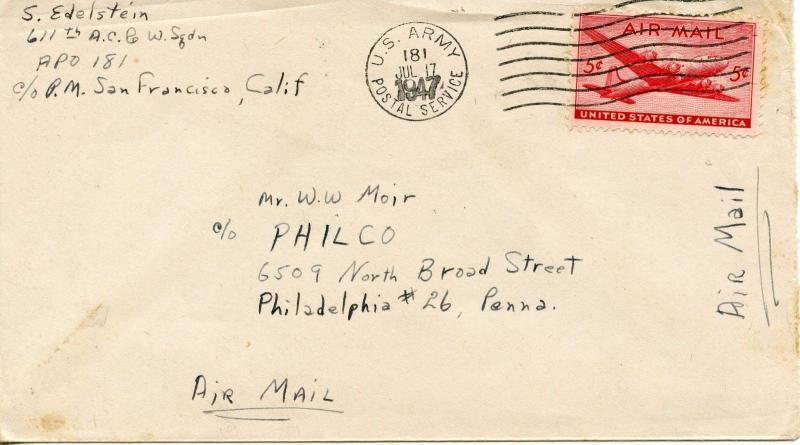 S. Edelstein
611th A.C. & W. Sqdn
APO 181
c/o P.M. San Francisco, Calif
U.S. ARMY
181
JUL 17
1947
POSTAL SERVICE
AIR MAIL
5¢ 5¢
UNITED STATES OF AMERICA
Mr. W.W Moir
c/o PHILCO
6509 North Broad Street
Philadelphia #26, Penna.
Air Mail
AIR MAIL